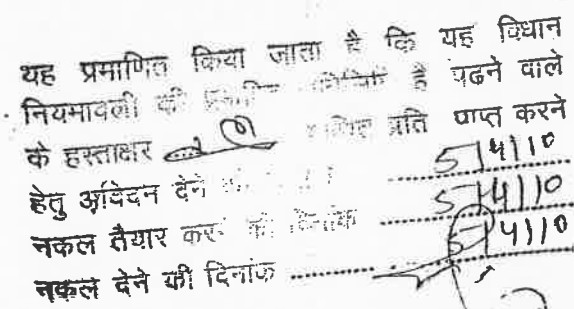 यह प्रमाणित किया जाता है कि यह विधान
नियमावली की है पढने वाले
के हस्ताक्षर प्रति प्राप्त करने
हेतु आवेदन देने 5/4/10
नकल तैयार करने की दिनांक 5/4/10
नकल देने की दिनांक 5/4/10